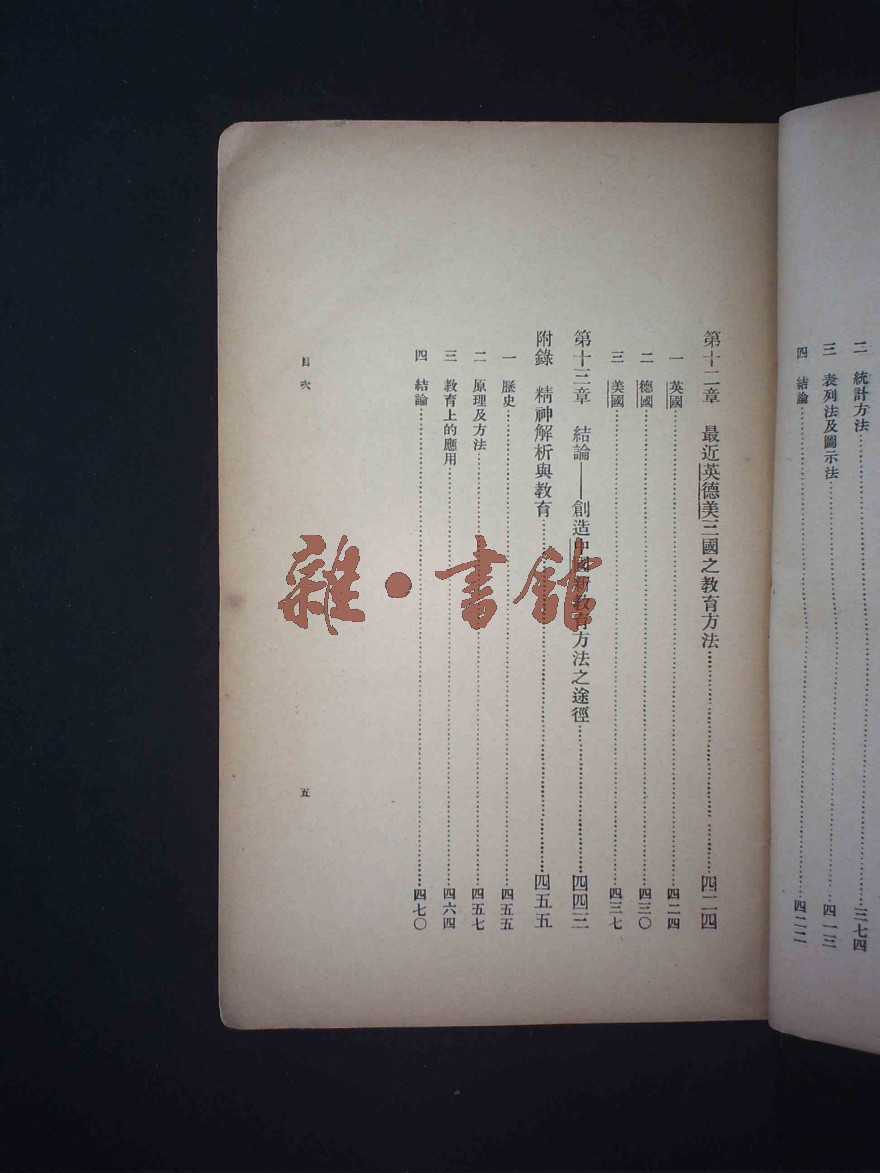 二　統計方法……三七四
三　表列法及圖示法……四一三
四　結論……四二二
第十二章　最近英德美三國之教育方法……四二四
一　英國……四二四
二　德國……四三〇
三　美國……四三七
第十三章　結論——創造中國新教育方法之途徑……四四三
附錄　精神解析與教育……四五五
一　歷史……四五五
二　原理及方法……四五七
三　教育上的應用……四六四
四　結論……四七〇
目次
五
雜·書館